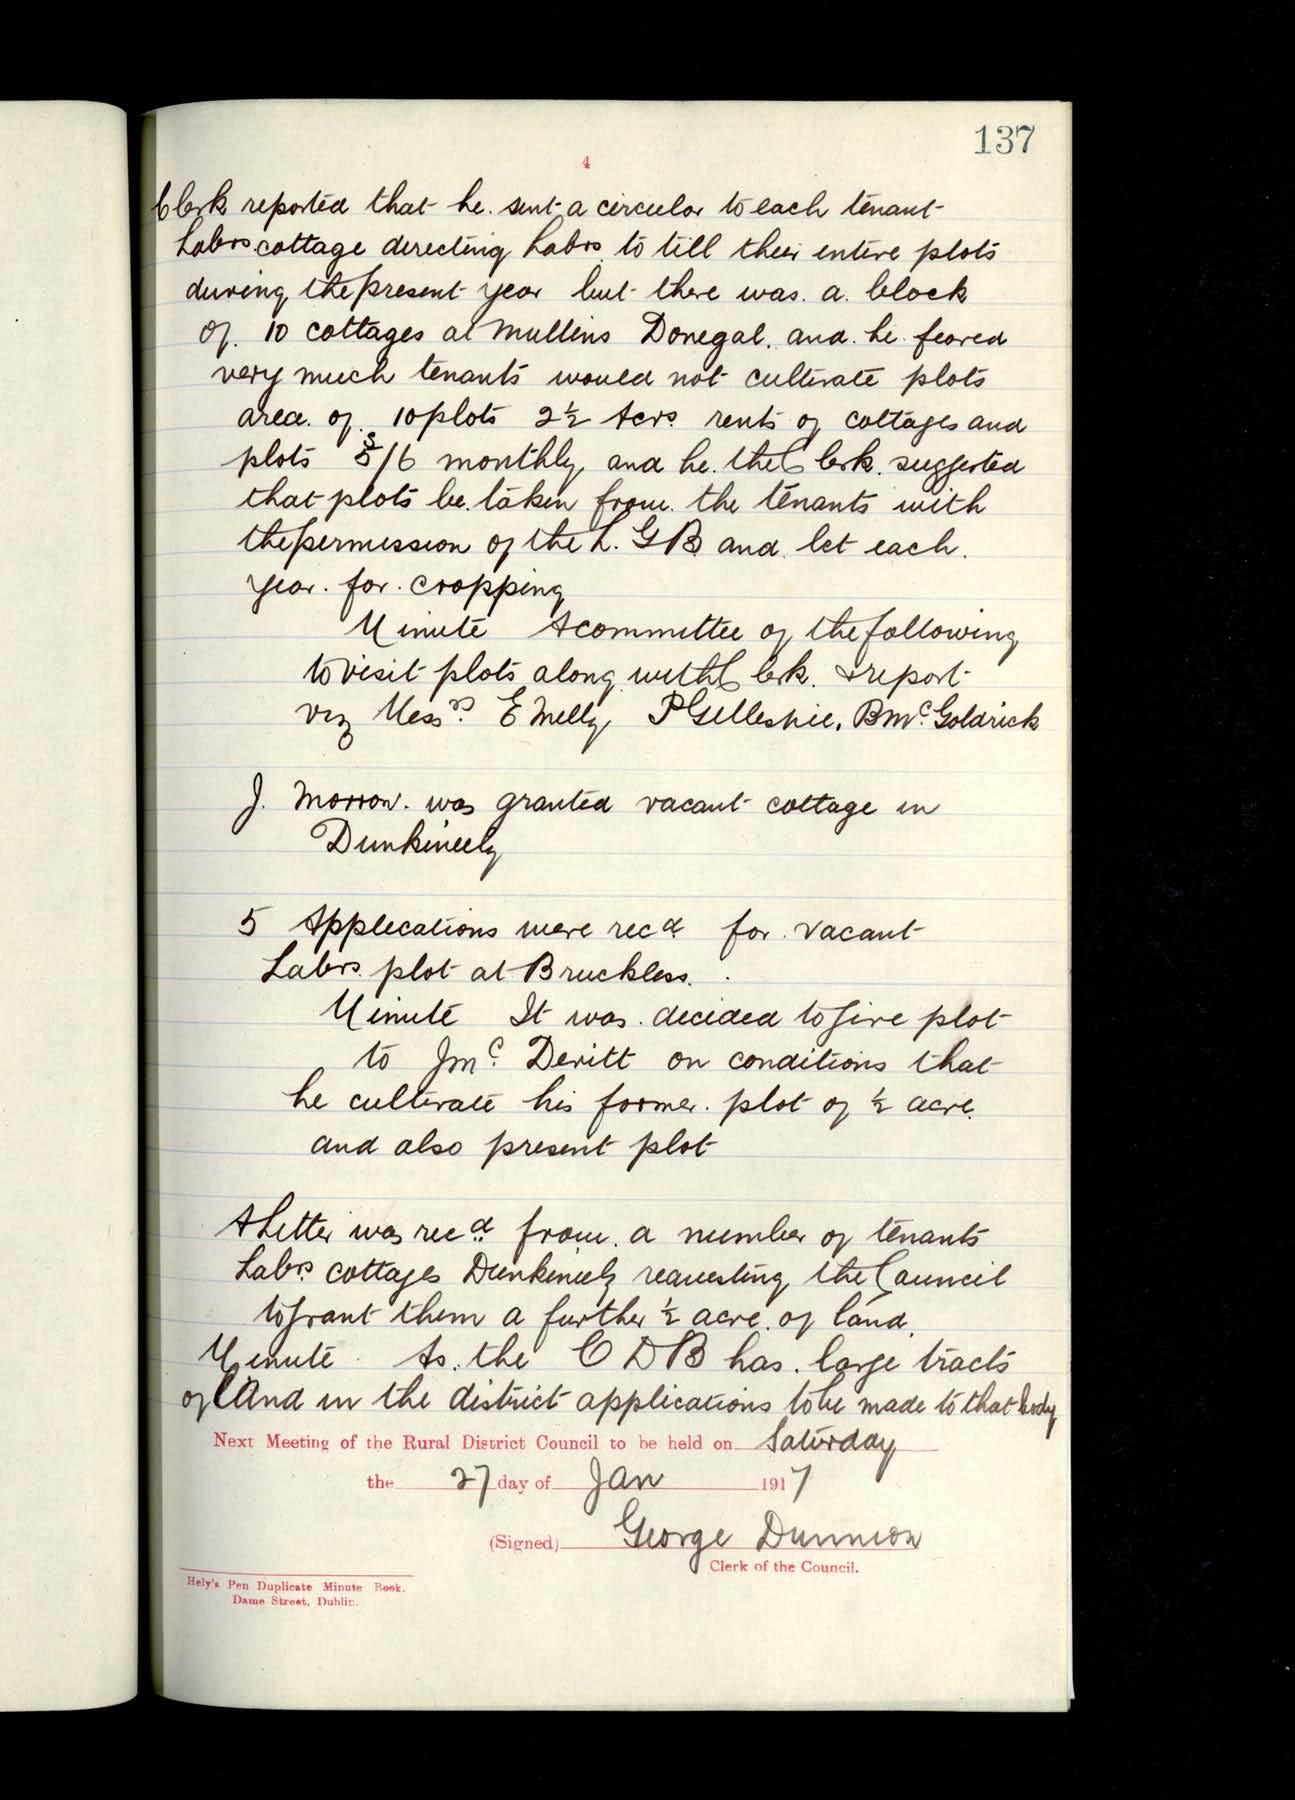 137
4
Clerk reported that he sent a circular to each tenant
Labrs. cottage directing Labrs. to till their entire plots
during the present year but there was a block
of 10 cottages at Mullins Donegal. and he feared
very much tenants would not cultivate plots
area of 10 plots 2½ Acrs rents of cottages and
plots 5/6 monthly and he the Clerk suggested
that plots be taken from the tenants with
the permission of the L. G B and let each
year for cropping
Minute A committee of the following
to visit plots along with Clerk. & report
viz Messrs. E Melly P Gillespie, B McGoldrick
J. Morrow. was granted vacant cottage in
Dunkineely
5 Applications were recd for vacant
Labrs. plot at Bruckless.
Minute It was decided to give plot
to J Mc Devitt on conditions that
he cultivate his former plot of ½ acre
and also present plot
A Letter was recd from a number of tenants
Labrs cottages Dunkineely requesting the Council
to grant them a further ½ acre of land.
Minute As the C D B has large tracts
of land in the district applications to be made to that body
Next Meeting of the Rural District Council to be held on Saturday
the 27 day of Jan 1917
(Signed) George Dunnion
Clerk of the Council.
Hely's Pen Duplicate Minute Book.
Dame Street, Dublin.